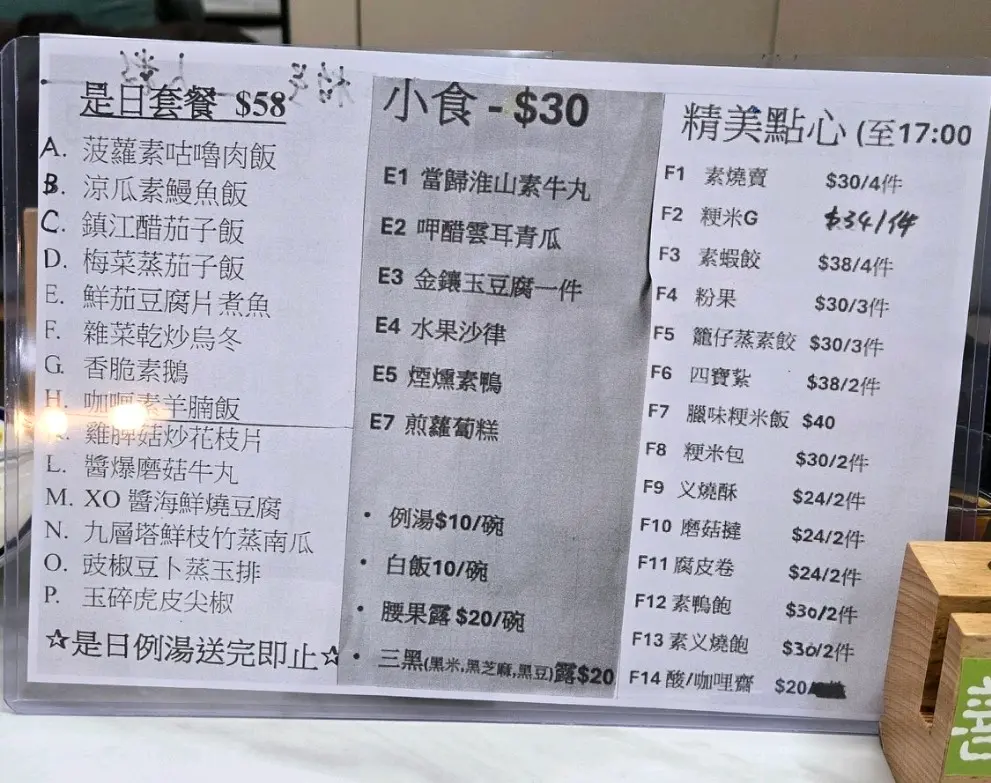 是日套餐 $58
A. 菠蘿素咕嚕肉飯
B. 涼瓜素鰻魚飯
C. 鎮江醋茄子飯
D. 梅菜蒸茄子飯
E. 鮮茄豆腐片煮魚
F. 雜菜乾炒烏冬
G. 香脆素鵝
H. 咖喱素羊腩飯
K. 雞髀菇炒花枝片
L. 醬爆磨菇牛丸
M. XO 醬海鮮燒豆腐
N. 九層塔鮮枝竹蒸南瓜
O. 豉椒豆卜蒸玉排
P. 玉碎虎皮尖椒
☆是日例湯送完即止☆
小食 - $30
E1 當歸淮山素牛丸
E2 呷醋雲耳青瓜
E3 金鑲玉豆腐一件
E4 水果沙律
E5 煙燻素鴨
E7 煎蘿蔔糕
• 例湯$10/碗
• 白飯10/碗
• 腰果露 $20/碗
• 三黑(黑米,黑芝麻,黑豆)露$20
精美點心 (至17:00
F1 素燒賣 $30/4件
F2 粳米G $34/1件
F3 素蝦餃 $38/4件
F4 粉果 $30/3件
F5 籠仔蒸素餃 $30/3件
F6 四寶紮 $38/2件
F7 臘味粳米飯 $40
F8 粳米包 $30/2件
F9 义燒酥 $24/2件
F10 磨菇撻 $24/2件
F11 腐皮卷 $24/2件
F12 素鴨飽 $30/2件
F13 素义燒飽 $30/2件
F14 酸/咖哩齋 $20